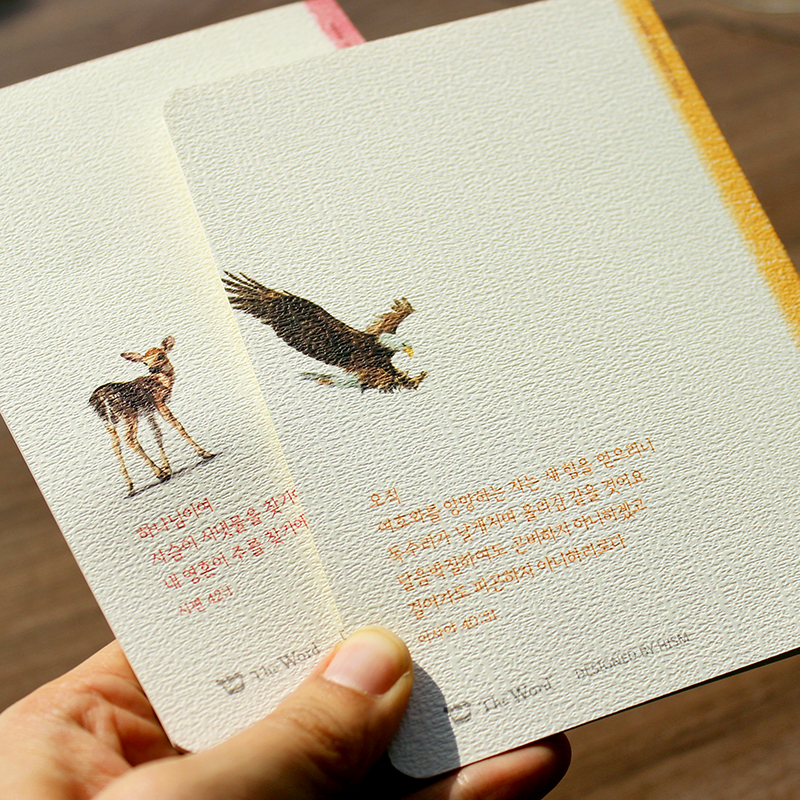 하나님이여
사슴이 시냇물을 찾기에
내 영혼이 주를 찾기에
시편 42:1
The Word
오직
여호와를 앙망하는 자는 새 힘을 얻으리니
독수리가 날개치며 올라감 같을 것이요
달음박질하여도 곤비하지 아니하겠고
걸어가도 피곤하지 아니하리로다
이사야 40:31
The Word
DESIGNED BY HISM